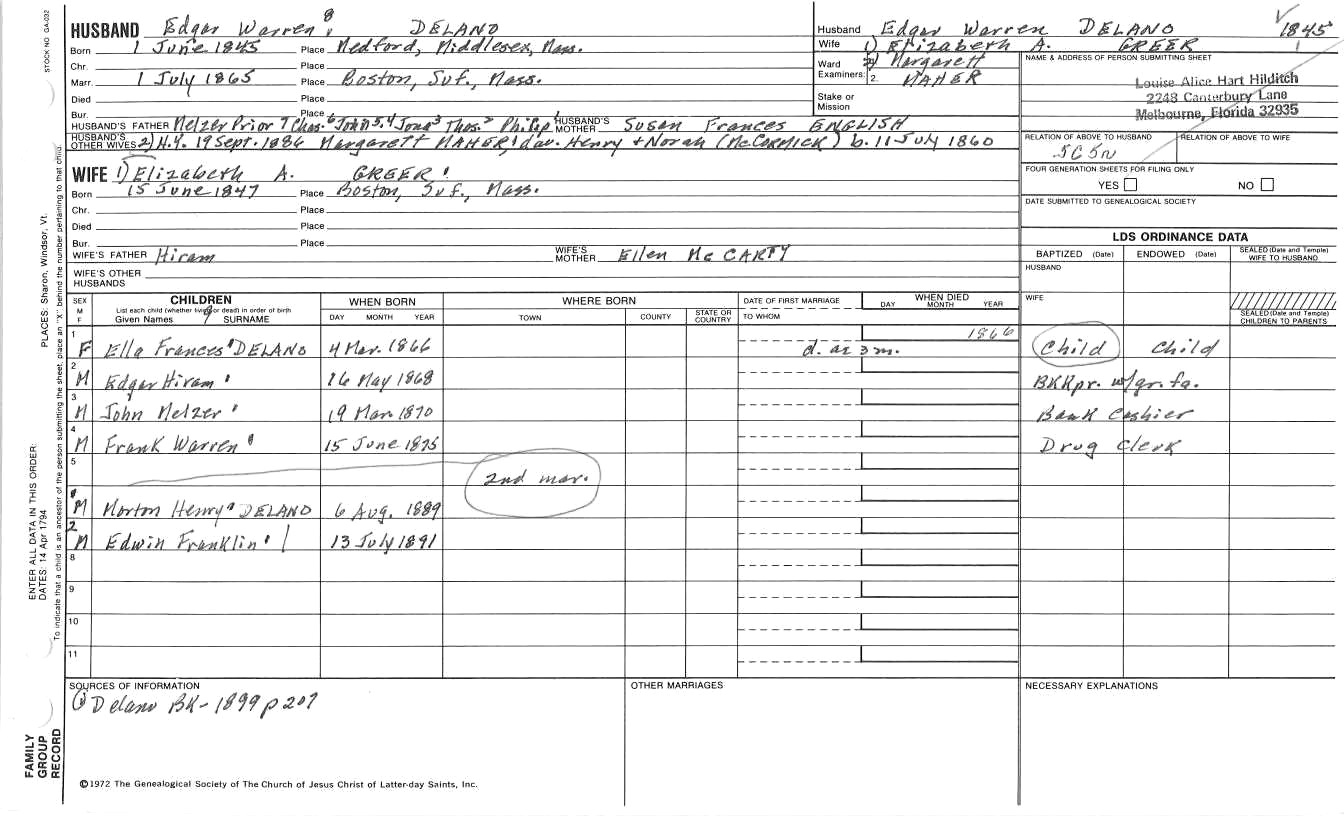 STOCK NO GA-032
HUSBAND Edgar Warren 8 DELANO
Born 1 June 1845 Place Medford, Middlesex, Mass.
Chr. Place
Marr. 1 July 1865 Place Boston, Suf. Mass.
Died Place
Bur. Place
HUSBAND'S FATHER Melzer Prior 7 Chas. 6 John 5,4 Jona 3 Thos. 2 Philip 1 HUSBAND'S MOTHER Susan Frances ENGLISH
HUSBAND'S OTHER WIVES 2) N.Y. 19 Sept. 1886 Margarett MAHER, dau. Henry + Norah (McCORMICK) b. 11 July 1860
WIFE 1) Elizabeth A. GREER
Born 15 June 1847 Place Boston, Suf. Mass.
Chr. Place
Died Place
Bur. Place
WIFE'S FATHER Hiram WIFE'S MOTHER Ellen McCARTY
WIFE'S OTHER HUSBANDS
Husband Edgar Warren DELANO 1845
Wife 1) Elizabeth A. GREER
Ward Examiners: 2) Margarett
2. MAHER
Stake or Mission
NAME & ADDRESS OF PERSON SUBMITTING SHEET
Louise Alice Hart Hilditch
2248 Canterbury Lane
Melbourne, Florida 32935
RELATION OF ABOVE TO HUSBAND RELATION OF ABOVE TO WIFE
FOUR GENERATION SHEETS FOR FILING ONLY
YES NO
DATE SUBMITTED TO GENEALOGICAL SOCIETY
LDS ORDINANCE DATA
BAPTIZED (Date) ENDOWED (Date) SEALED (Date and Temple) WIFE TO HUSBAND
HUSBAND
WIFE
SEALED (Date and Temple) CHILDREN TO PARENTS
SEX M F CHILDREN WHEN BORN WHERE BORN DATE OF FIRST MARRIAGE WHEN DIED
List each child (whether living or dead) in order of birth
Given Names SURNAME DAY MONTH YEAR TOWN COUNTY STATE OR COUNTRY TO WHOM DAY MONTH YEAR
1 F Ella Frances 9 DELANO 4 Mar. 1866 d. ae 3 m. 1866 Child Child
2 M Edgar Hiram 16 May 1868 BKKpr. w/gr. fa.
3 M John Melzer 19 Mar. 1870 Bank Cashier
4 M Frank Warren 15 June 1875 Drug Clerk
5 2nd mar.
1 M Morton Henry 9 DELANO 6 Aug. 1889
2 M Edwin Franklin 13 July 1891
8
9
10
11
SOURCES OF INFORMATION
① Delano BK - 1899 p 207
OTHER MARRIAGES
NECESSARY EXPLANATIONS
©1972 The Genealogical Society of The Church of Jesus Christ of Latter-day Saints, Inc.
PLACES: Sharon, Windsor, Vt.
ENTER ALL DATA IN THIS ORDER:
DATES: 14 Apr 1794
To indicate that a child is an ancestor of the person submitting the sheet, place an "X" behind the number pertaining to that child.
FAMILY
GROUP
RECORD